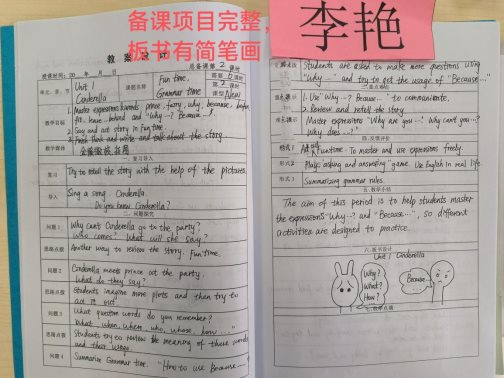 备课项目完整,
板书有简笔画
李艳
教案设计
总备课第2课时
授课时间: 20 年 月 日
单元、章、节
Unit 1
Cinderella
课题名称
Fun time.
Grammar time
第6课时
第2课时
课型 New
教学目标
1. Master expressions & words: prince, fairy, why, because, before,
for, leave...behind and "Why...? Because..."
2. Say and act story in Fun time.
3. Think and write and talk about the story.
教学准备
一、复习导入
复习
Try to retell the story with the help of the pictures.
导入
Sing a song. Cinderella.
Do you know Cinderella?
二、问题探究
问题1
Why can't Cinderella go to the party?
Who comes? What will she say?
思路点拨
Another way to review the story. Fun time.
问题2
Cinderella meets prince at the party.
What do they say?
思路点拨
Students imagine more plots and then try to
act it out
问题3
What question words do you remember?
What, when, whom, who, whose, how..."
思路点拨
Students try to review the meaning of these words
and their usage.
问题4
Summarize Grammar time. "How to use Because...
思路点拨
Students are asked to make more questions using
"Why..." and try to get the usage of "Because..."
三、重点难点
重点提示
1. Use "Why...? Because..." to communicate.
2. Review and retell the story
难点提示
Master expressions "Why are you...? Why can't you...?
Why does...?"
四、反馈评价
形式1
Fun time. To master and use expressions freely.
形式2
Plays "asking and answering" game. Use English in real life
形式3
Summarizing grammar rules.
五、教学小结
The aim of this period is to help students master
the expressions "Why...? and "Because...", so different
activities are designed to practice.
六、板书设计
Unit 1 Cinderella
Why?
What?
How?
Because...
七、教学点滴